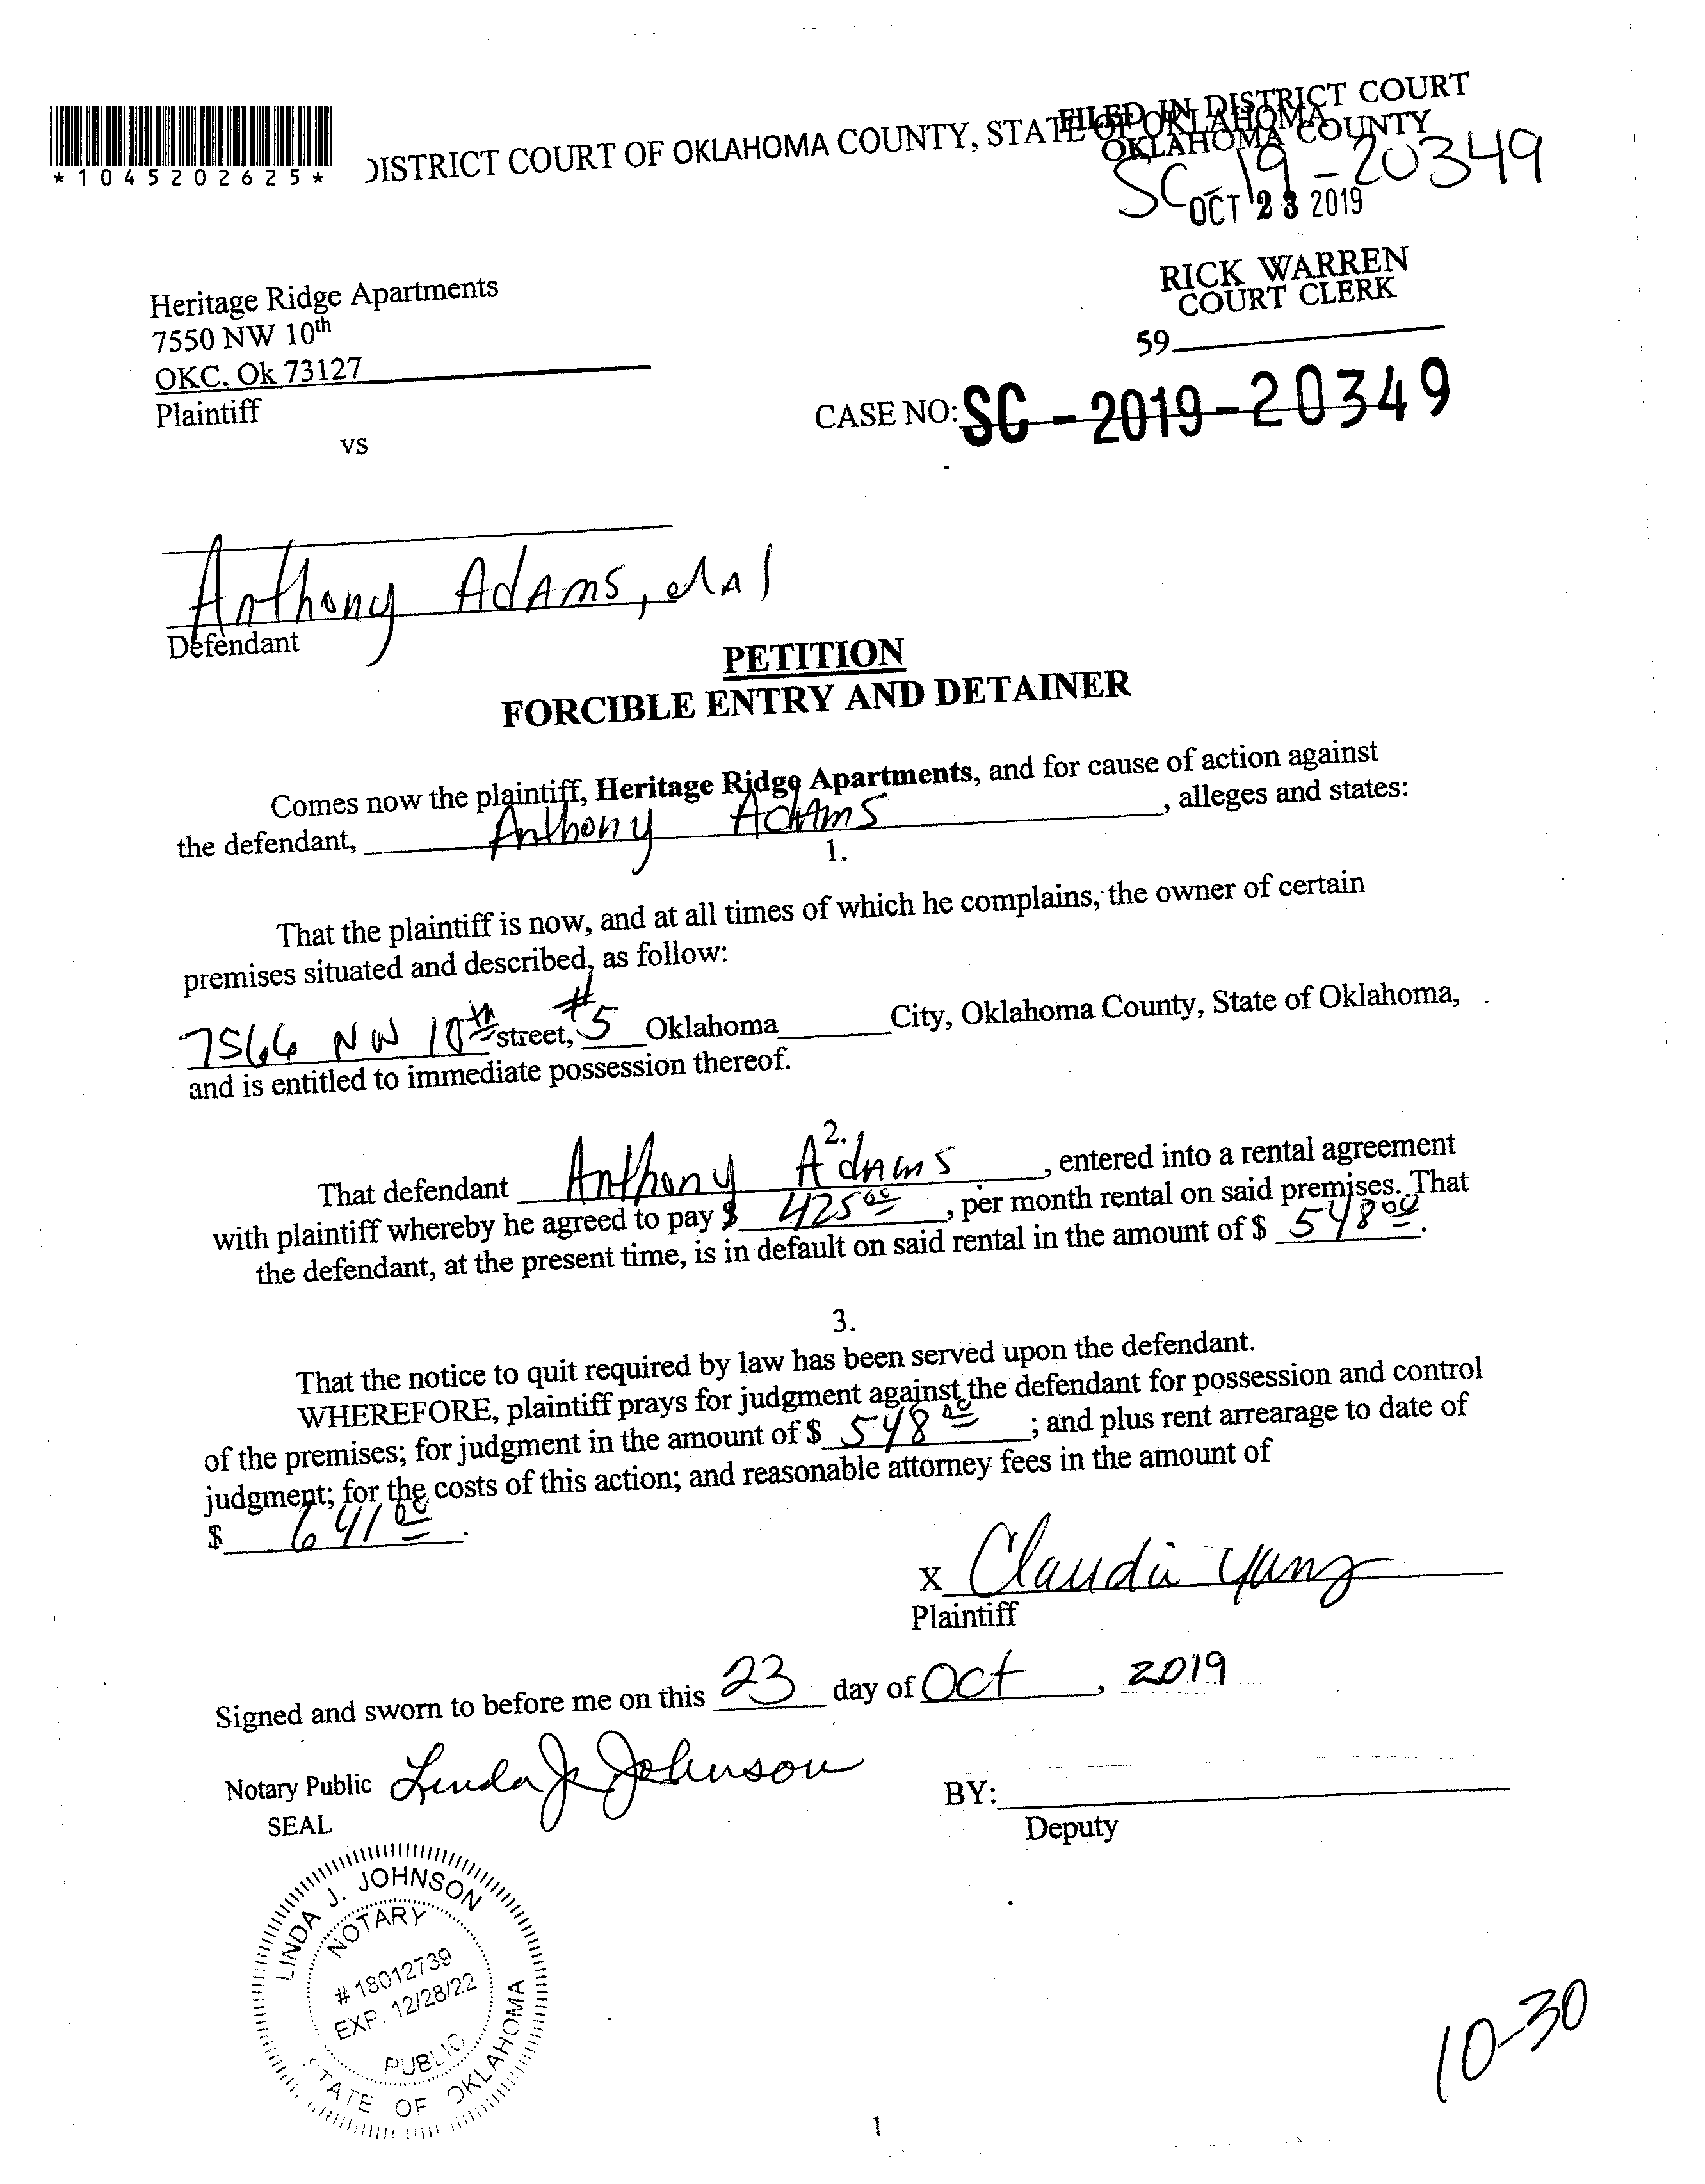 *1045202625*
DISTRICT COURT OF OKLAHOMA COUNTY, STATE OF OKLAHOMA
FILED IN DISTRICT COURT
OKLAHOMA COUNTY
SC-19-20349
OCT 23 2019
RICK WARREN
COURT CLERK
59
Heritage Ridge Apartments
7550 NW 10th
OKC, Ok 73127
Plaintiff
vs
CASE NO: SC-2019-20349
Anthony Adams, et Al
Defendant
PETITION
FORCIBLE ENTRY AND DETAINER
Comes now the plaintiff, Heritage Ridge Apartments, and for cause of action against
the defendant, Anthony Adams, alleges and states:
1.
That the plaintiff is now, and at all times of which he complains, the owner of certain
premises situated and described, as follow:
7566 NW 10th street, #5 Oklahoma City, Oklahoma County, State of Oklahoma,
and is entitled to immediate possession thereof.
2.
That defendant Anthony Adams, entered into a rental agreement
with plaintiff whereby he agreed to pay $ 425 00, per month rental on said premises. That
the defendant, at the present time, is in default on said rental in the amount of $ 548 00.
3.
That the notice to quit required by law has been served upon the defendant.
WHEREFORE, plaintiff prays for judgment against the defendant for possession and control
of the premises; for judgment in the amount of $ 548 00; and plus rent arrearage to date of
judgment; for the costs of this action; and reasonable attorney fees in the amount of
$ 641 00.
X Claudia Yang
Plaintiff
Signed and sworn to before me on this 23 day of Oct, 2019
Notary Public Linda J Johnson
SEAL
BY:
Deputy
LINDA J. JOHNSON
NOTARY
# 18012739
EXP. 12/28/22
PUBLIC
STATE OF OKLAHOMA
10-30
1